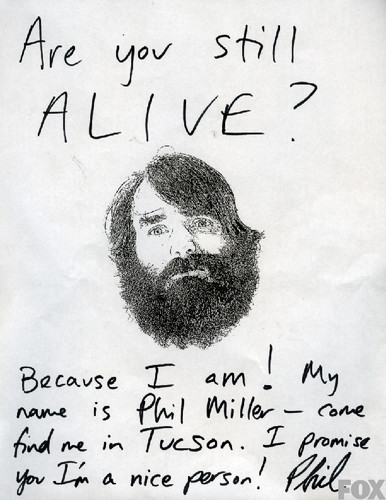 Are you still
ALIVE?
Because I am! My
name is Phil Miller – come
find me in Tucson. I promise
you I'm a nice person! Phil
FOX